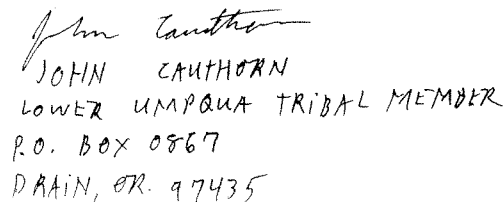 John Cauthorn
JOHN CAUTHORN
LOWER UMPQUA TRIBAL MEMBER
P.O. BOX 0867
DRAIN, OR. 97435